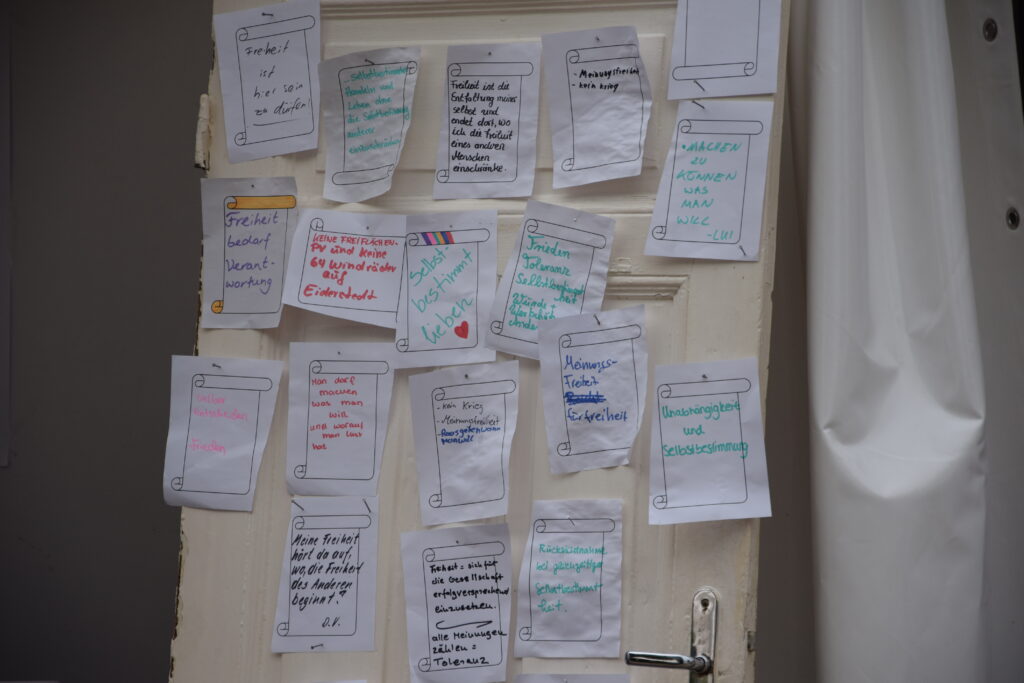 Freiheit
ist
hier sein
zu dürfen!
- Selbstbestimmtes
Handeln und
Leben ohne
die Selbstbestimmung
anderer
einzuschränken
Freiheit ist die
Entfaltung meiner
selbst und
endet dort, wo
ich die Freiheit
eines anderen
Menschen
einschränke.
- Meinungsfreiheit
- kein krieg
• MACHEN
ZU
KÖNNEN
WAS
MAN
WILL
- LUI
Freiheit
bedarf
Verant-
wortung
KEINE FREIFLÄCHEN-
PV und keine
64 Windräder
auf
Eiderstedt
Selbst-
bestimmt
lieben
Frieden
Toleranz
Würde +
Meinungs-
Freiheit
für freiheit
Selber
Entscheiden
Frieden
Man darf
machen
was man
will
und worauf
man lust
hat
- kein Krieg
- Meinungsfreiheit
Unabhängigkeit
und
Selbstbestimmung
Meine Freiheit
hört da auf,
wo, die Freiheit
des Anderen
beginnt!
D.V.
Freiheit = sich für
die Gesellschaft
erfolgversprechend
einzusetzen.
alle Meinungen
zählen =
Toleranz
Rücksichtnahme
bei gleichzeitiger
Selbstbestimmt
heit.